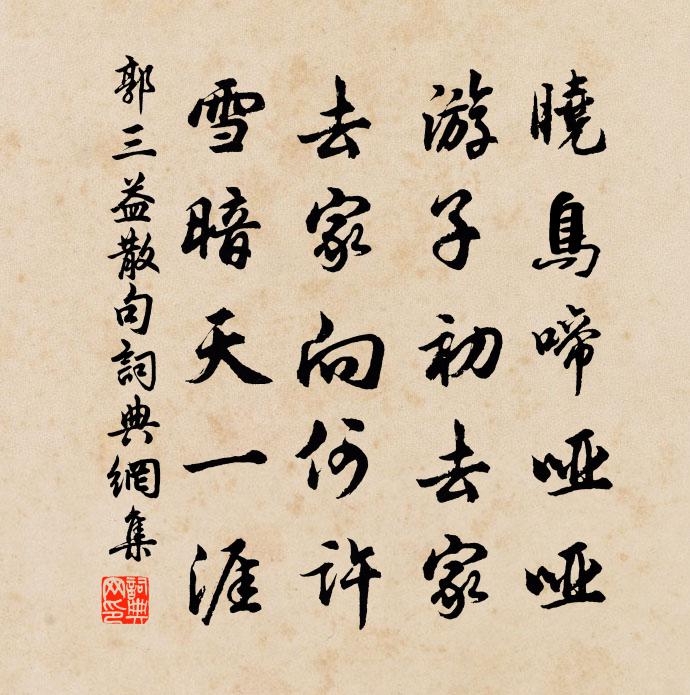 曉鳥啼啞啞
游子初去家
去家向何許
雪暗天一涯
郭三益散句詞典網集
詞典
网印